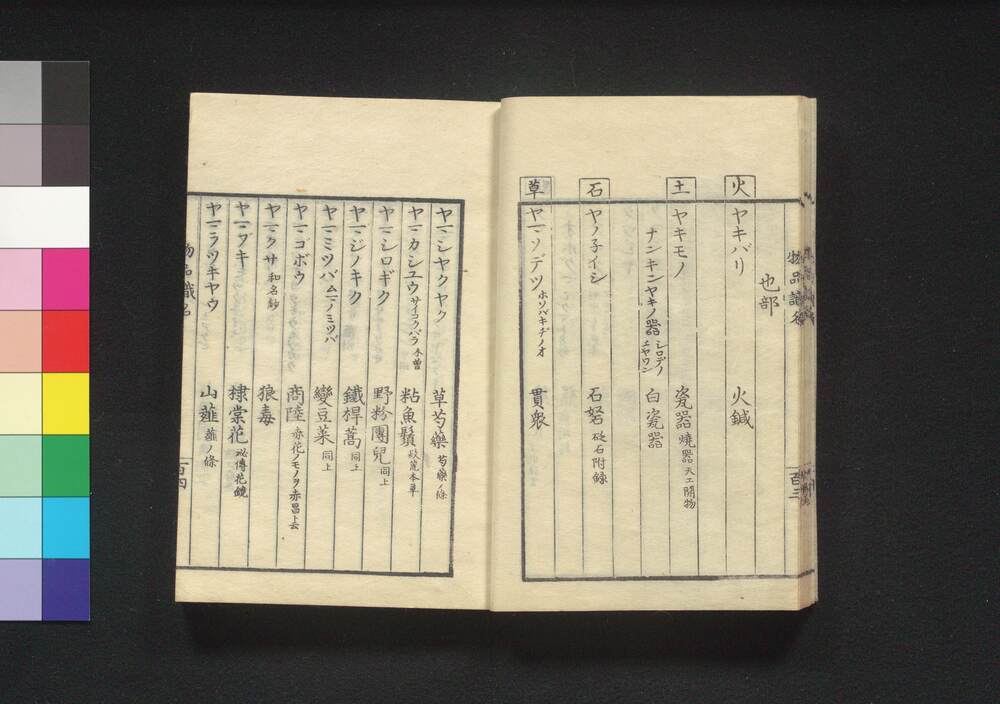 物品識名
也部
百三
火
ヤキバリ 火鍼
土
ヤキモノ 瓷器 燒器 天工開物
ナンキンヤキノ器 シロデノ ニヤワン 白瓷器
石
ヤノ子イシ 石砮 砭石附録
草
ヤマソデツ ホソバキヂノオ 貫衆
ヤマシヤクヤク 草芍藥 芍藥ノ條
ヤマカシユウ サイコクバラ 木曽 粘魚鬚 救荒本草
ヤマシロギク 野粉團兒 同上
ヤマジノキク 鐵桿蒿 同上
ヤマミツバ ムマノミツバ 變豆菜 同上
ヤマゴボウ 商陸 赤花ノモノヲ赤昌ト云
ヤマクサ 和名鈔 狼毒
ヤマブキ 棣棠花 祕傳花鏡
ヤマラツキヤウ 山薤 薤ノ條
物品識名
百四